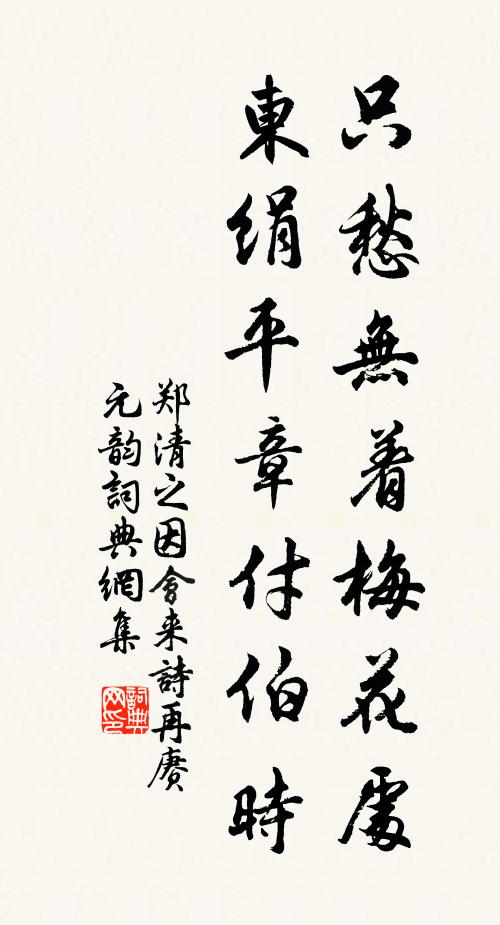 只愁無着梅花處
東絹平章付伯時
郑清之因會来詩再赓
元韵詞典網集
詞典网印